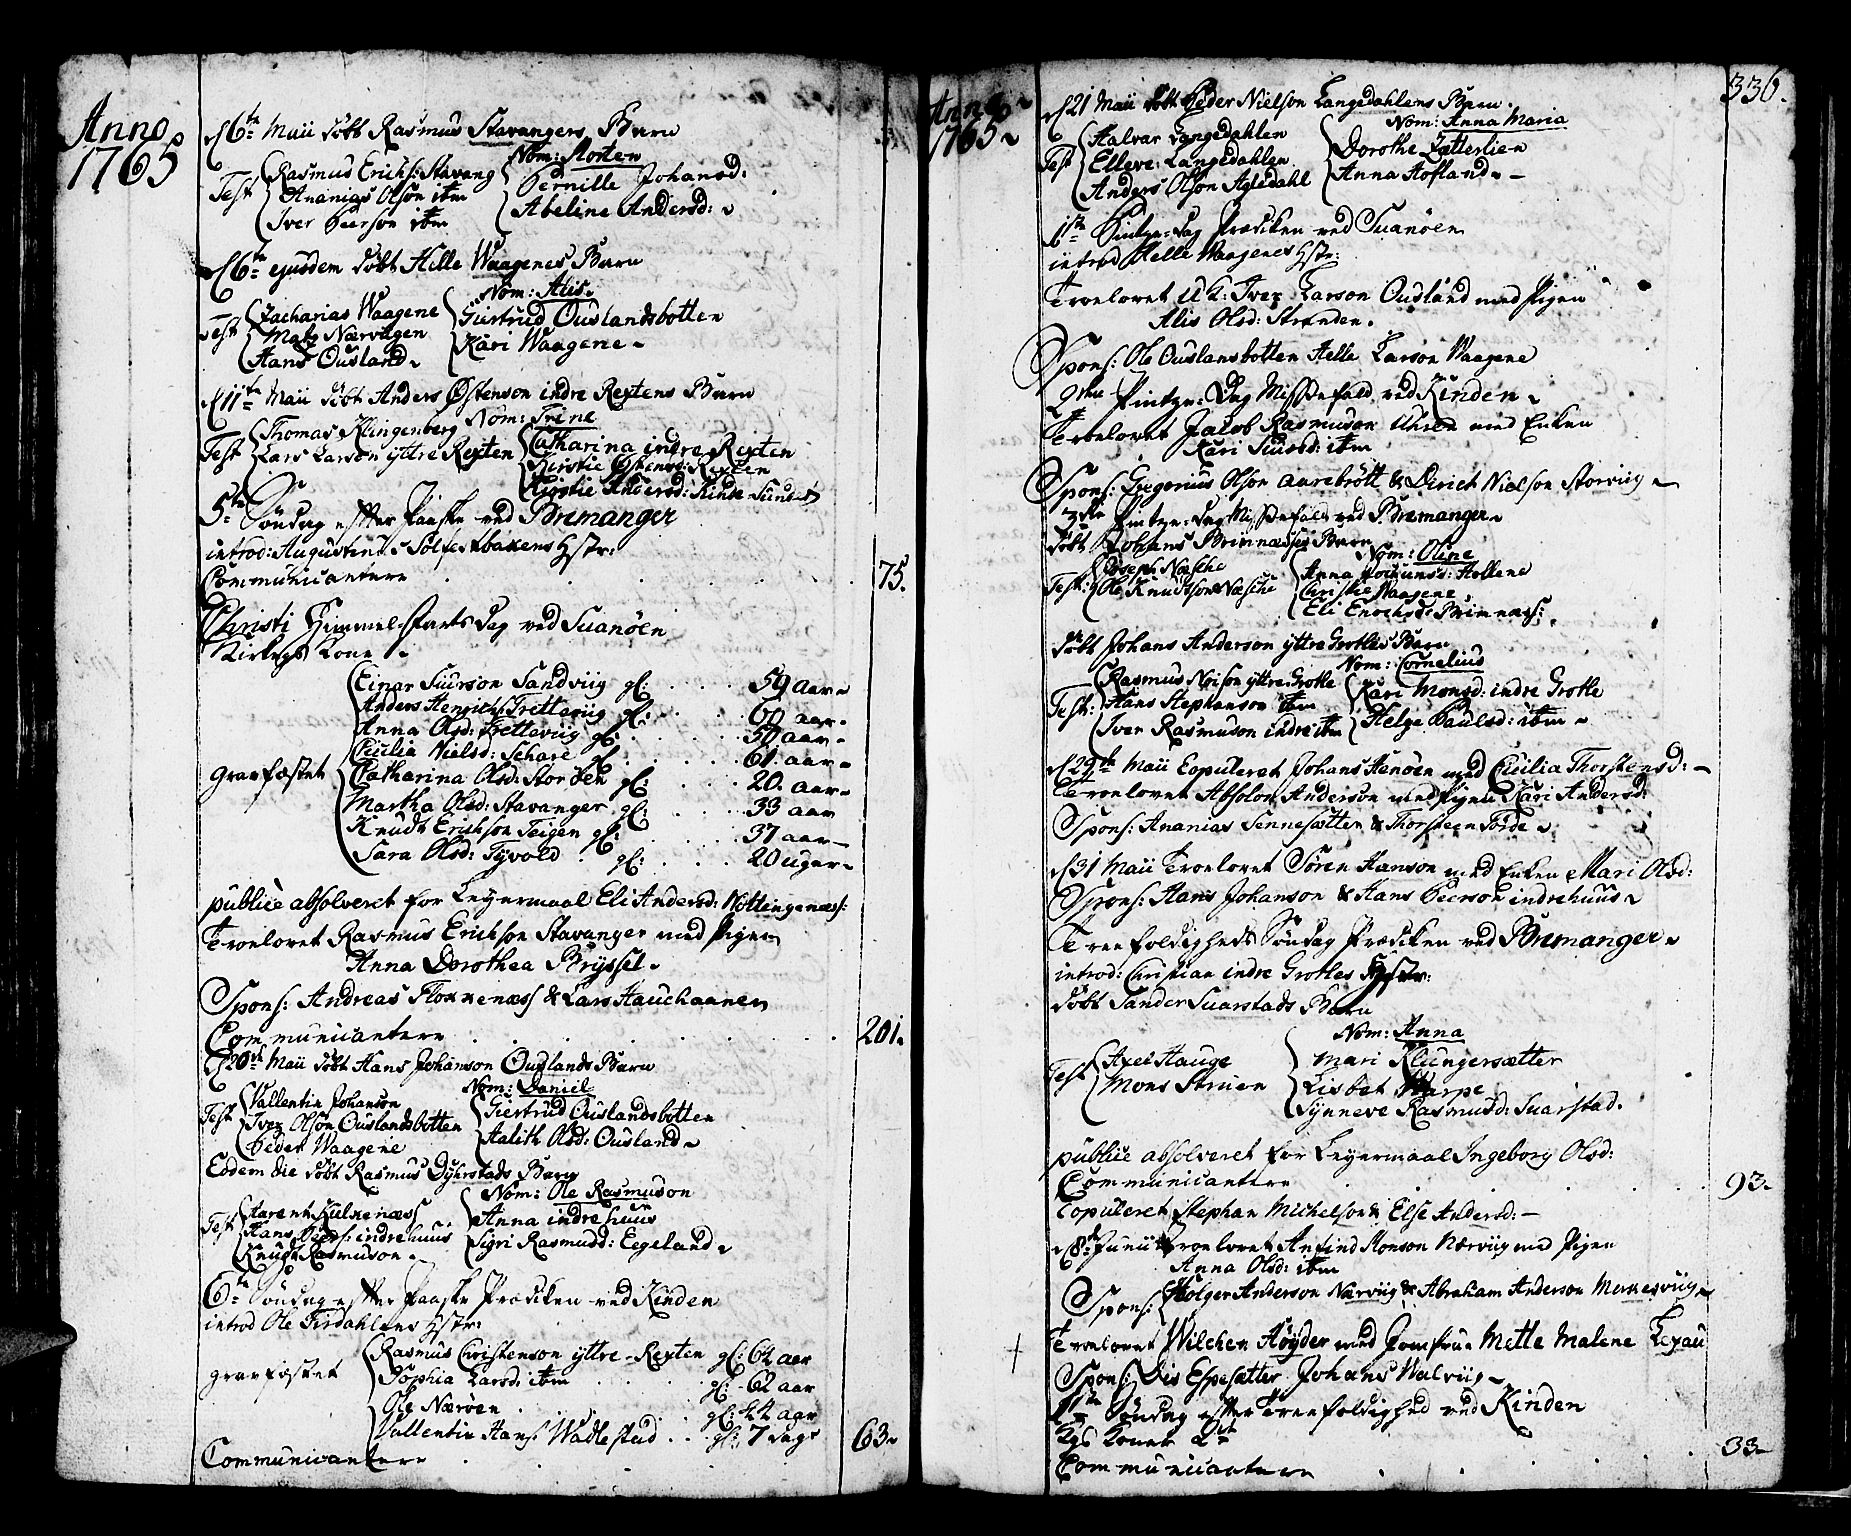 Anno
1765
d 6te Maii döbt Rasmus Stavangers Barn
Nom: Morten
Test Rasmus Erichs: Stavang
Ananias Olson itm
Iver Peerson itm
Pernille Johansd:
Abeline Andersd:
d 6te ejusdem döbt Helle Waagenes Barn
Nom: Alis
Test Zacharias Waagene
Mats Nærvügen
Hans Ousland
Giertrud Ouslandsbotten
Kari Waagene
d 11te Maii döbt Anders Østenson indre Rextens Barn
Nom: Trine
Test Thomas Klingenberg
Lars Larson yttre Rexten
Catharina indre Rexten
Kirstie Østensd: Rexten
Kirstie Andersd: Kinde Sund
5te Söndag efter Paaske ved Bremanger
introd: Augustin Solferbakens Hstr:
Communicantere 75.
Christi Himmelfarts Dag ved Suanöen
Kirkegs Kone
Gravfæstet
Einar Siurson Sandviig gl: 59 aar
Anders Henrichs: Trettevüg gl: 60 aar
Anna Olsd: Trettevüg gl: 50 aar
Cicilia Nielsd: Schare gl: 61 aar
Catharina Olsd: Storöen gl: 20. aar
Martha Olsd: Stavanger gl: 33 aar
Knudt Erichson Teigen gl: 37 aar
Sara Olsd: Tyvold gl: 20 uger
publicè absolveret for Leyermaal Eli Andersd: Nöttingenæss:
Troelovet Rasmus Erichson Stavanger med Pigen
Anna Dorothea Bryssel
Spons: Andreas Flokkenæss & Lars Hauchaanen
Communicantere 201.
d 20de Maii döbt Hans Johanson Ouslands Barn
Nom: Daniel
Test Vallentin Johanson
Iver Olson Ouslandsbotten
Peder Waagene
Giertrud Ouslandsbotten
Aalith Olsd: Ousland
Eodem die döbt Rasmus Dyhrstads Barn
Nom: Ole Rasmuson
Test Aarent Kulkenæss
Hans Peers: indrehuus
Knudt Rasmuson
Anna indrehuus
Sigri Rasmusd: Eigeland
6te Söndag efter Paaske Prædiken ved Kinden
introd Ole Firdahlens Hstr:
gravfæstet
Rasmus Christenson yttre-Rexten gl: 64 aar
Sophia Larsd: itm gl: 62 aar
Ole Nærøen gl: 44 aar
Vallentin Hans: Wadlestad gl: 7 dage
Communicantere 63
Anno
1765
336.
d 21 Maii döbt Peder Nielson Langedahlens Barn
Nom: Anna Maria
Test Halvar Langedahlen
Elleve Langedahlen
Anders Olson Agledahl
Dorothe Zætterlien
Anna Hofland
1ste Pintze-dag Prædiken ved Suanöen
introd Helle Waagenes Hstr:
Troelovet U.K: Iver Larson Ousland med Pigen
Alis Olsd: Stranden.
Spons: Ole Ouslansbotten Helle Larson Waagene
2den Pintze-Dag Missefald ved Kinden
Troelovet Jacob Rasmuson Uhren med Enken
Kari Siursd: itm
Spons: Gregorius Olson Aarebrött & Dirich Nielson Storviig
3die Pintze-dag Missefald ved Bremanger
döbt Johans Brimnæses Barn
Nom: Oline
Test: Joseph Næsche
Ole Knudtson Næsche
Christie Waagene
Eli Enochsd: Brimnæs:
döbt Johans Anderson yttre Grotles Barn
Nom: Cornelius
Test: Rasmus Nilson yttre Grotle
Hans Stephanson itm
Iver Rasmuson indre itm
Kari Monsd: indre Grotle
Helge Paulsd: itm
d 29de Maii Copuleret Johans Henöen med Cicilia Thorstensd:
Troelovet Absolon Anderson med Pigen Kari Andersd:
Spons: Ananias Sennesætter & Thorsteen Förde
d 31 Maii Troelovet Søren Hanson med Enken Mari Olsd:
Spons: Hans Johanson & Hans Peerson indrehuus
Treefoldigheds Söndag Prædiken ved Bremanger
introd: Christian indre Grotles Hstr:
döbt Sander Suarstads Barn
Nom: Anna
Test Axel Hauge
Mons Struen
Mari Klungersætter
Lisbet Warpe
Synneve Rasmusd: Suarstad.
publicè absolveret for Leyermaal Ingeborg Olsd:
Communicantere 93.
Copuleret Stephan Michelson & Else Andersd:
d 8de Junii Troelovet Anfind Monson Nærviig med Pigen
Anna Olsd: itm
Spons: Holger Anderson Nærviig & Abraham Anderson Munkesviig
Troelovet Wilchen Höyder med Jomfrue Mette Malene Lexau
Spons: Dis Espesætter Johans Walviig
1ste Söndag efter Treefoldighed ved Kinden
Kgs Koner 2de
Communicantere 33